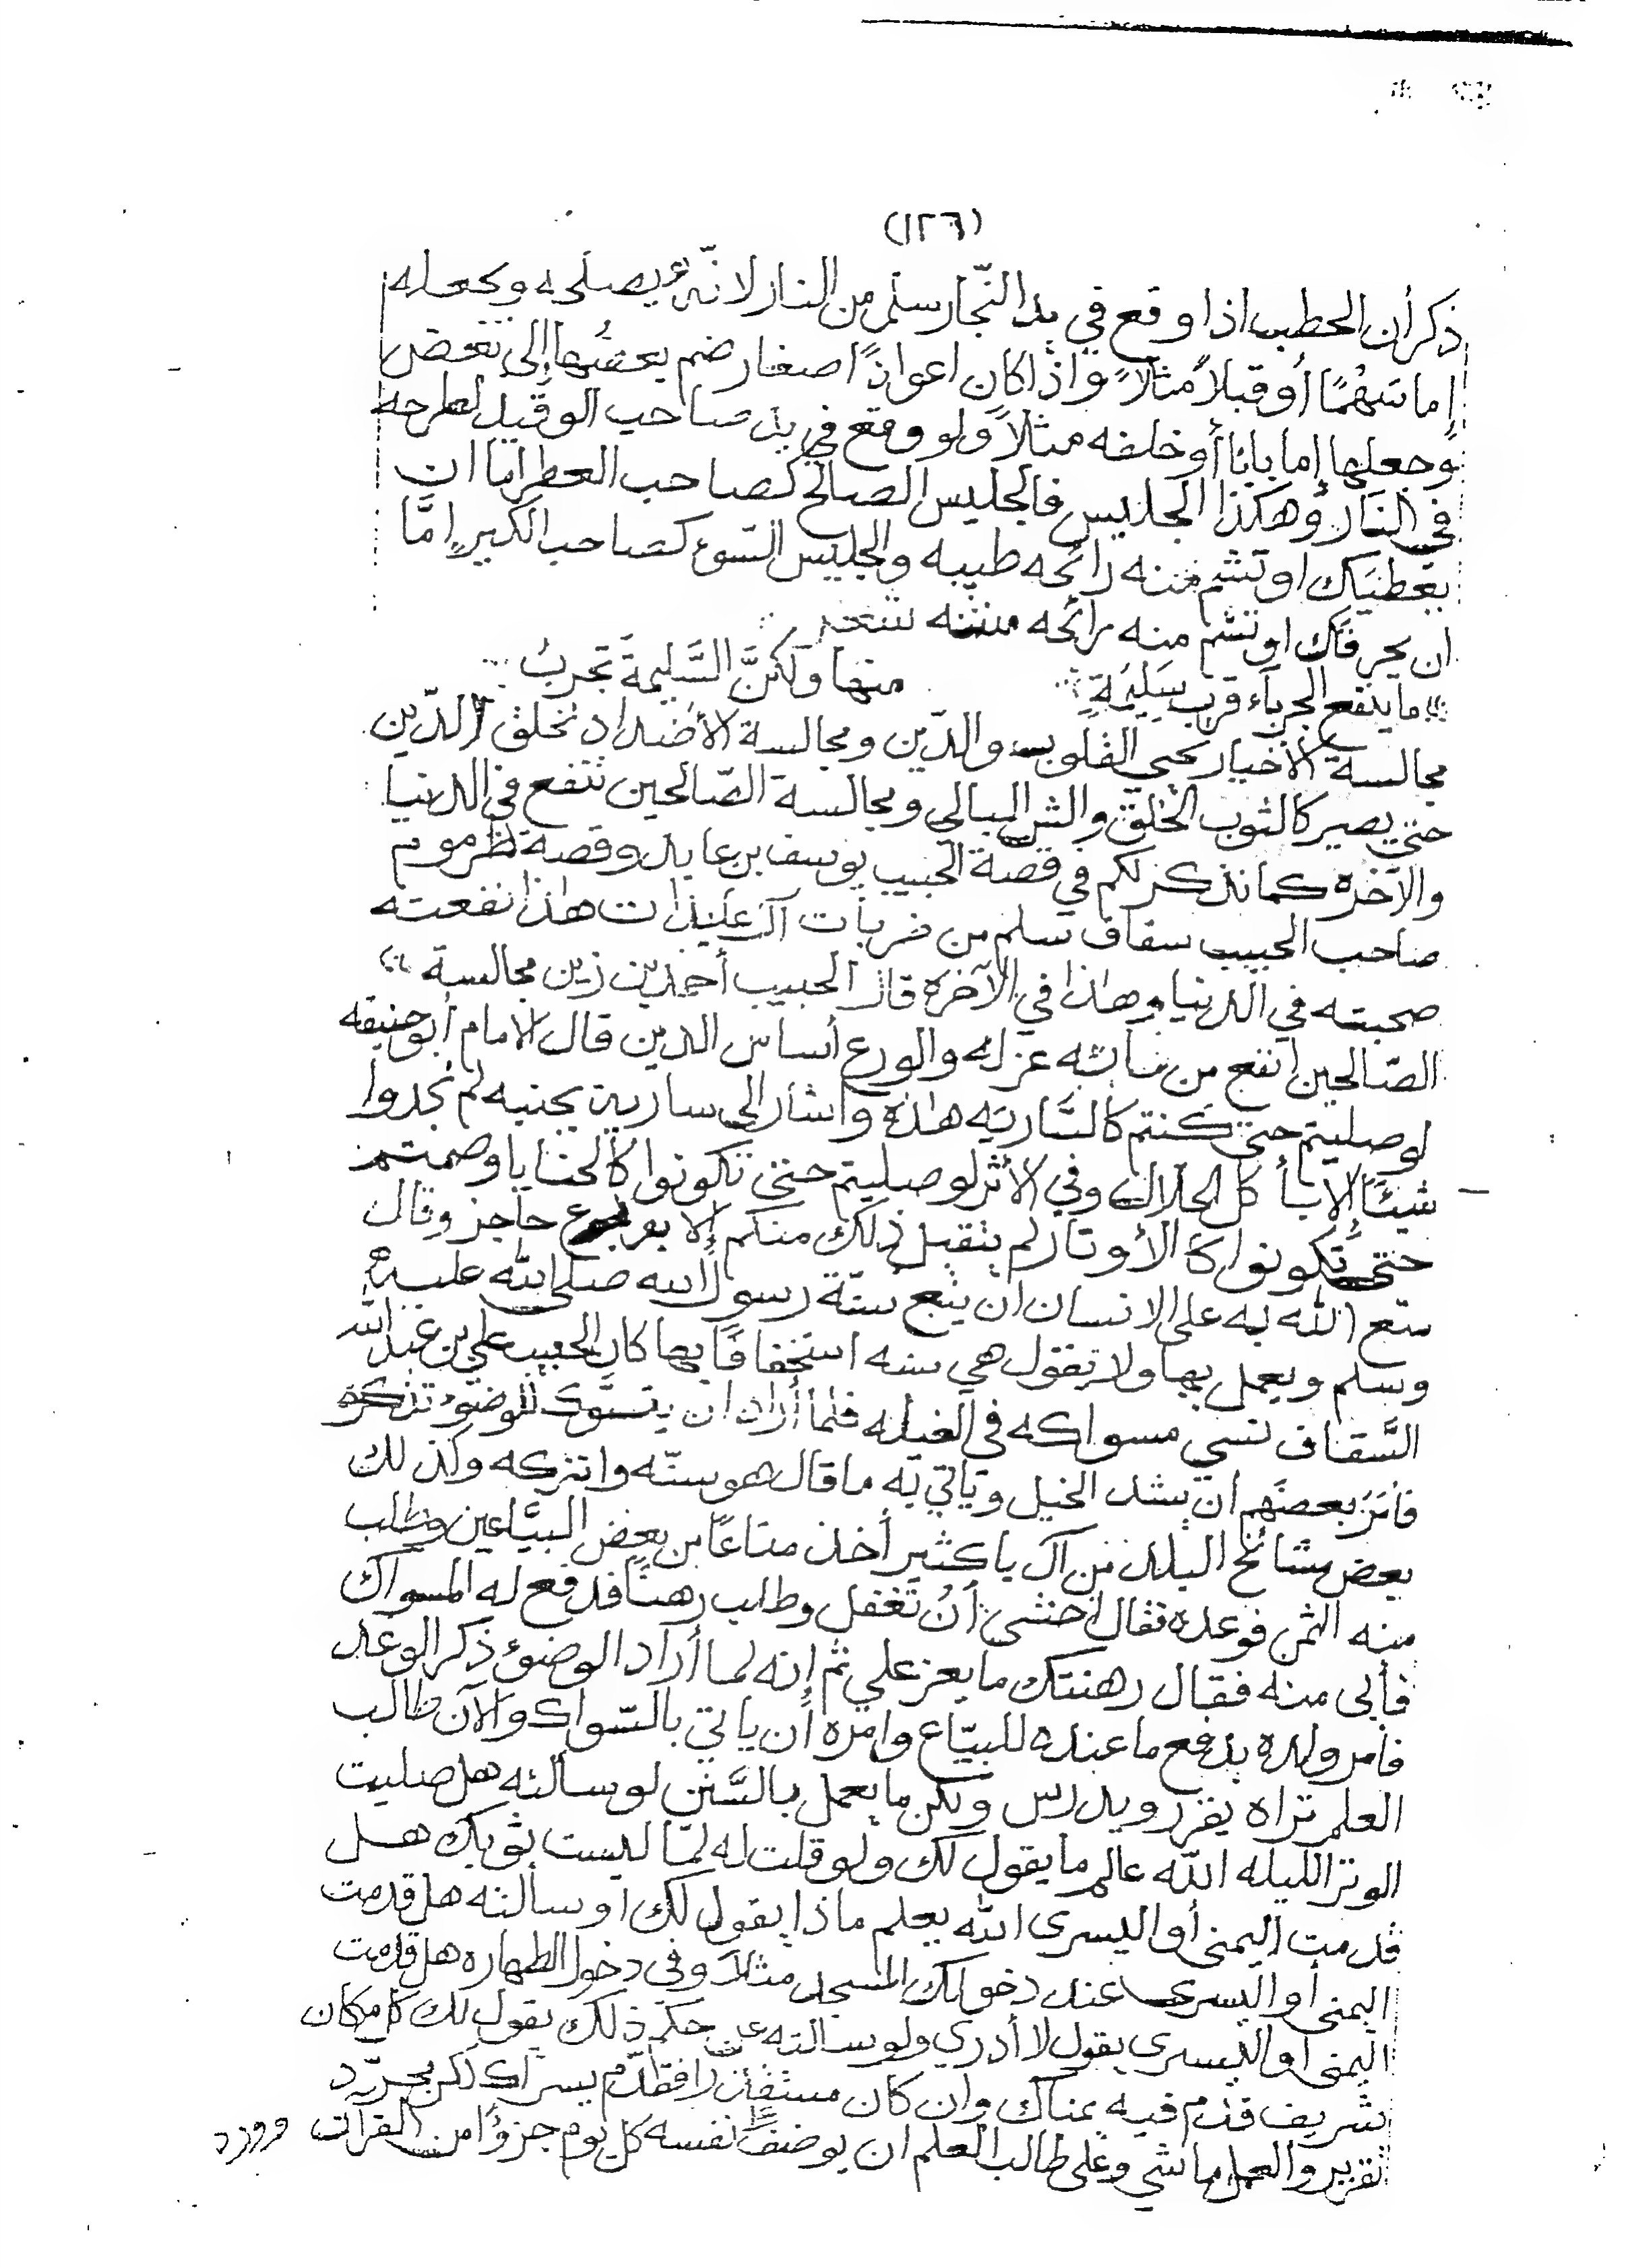 (١٢٦)
ذكر أن الحطب اذا وقع في يد النّجار سلم من النار لانّه يصلحه ويجعله
إما سَهْمًا أو قبلاً مثالاً واذا كان اعواذًا صغار ضم بعضُها إلى بَعض
وجعلها إما بابًا أو خلفه مثلاً ولو وقع في يد صاحب الوقيد لطرحه
في النار وهكذا الجليس فالجليس الصالح كصاحب العطر اما ان
يعطيك او تشم منه رائحه طيبه والجليس السّوء كصاحب الكير إمَّا
ان يحرقك او تشم منه رائحه منتنه شعر
ما ينفع الجرباء قرب سَلِيمَةٍ منها ولكنَّ السَّليمةَ تَجرَبُ
مجالسة الأخيار تحيي القلوب والدّين ومجالسة الأضداد تخلق الدّين
حتى يصير كالثوب الخلق والشن البالي ومجالسة الصّالحين تنفع في الدنيا
والآخره كما نذكر لكم في قصة الحبيب يوسف بن عابد وقصة مظرموم
صاحب الحبيب سقاف سلم من ضربات آل عبدات هذا نفعته
صحبته في الدنيا وهاذا في الآخرة قال الحبيب أحمد بن زين مجالسة
الصّالحين انفع من مائه عزله والورع أساس الدين قال الامام أبو حنيفه
لو صليتم حتى كنتم كالسَّاريه هاذه وأشار إلى سارية بجنبه لم تجدوا
شيئًا إلا بأكل الحلال وفي الأثر لو صليتم حتى تكونوا كالحنايا وصمتم
حتى تكونوا كالأوتار لم يتقبل ذلك منكم إلا بورع حاجز وقال
متع الله به على الانسان ان يتبع سنّة رسول الله صلى الله عليه
وسلم ويعمل بها ولا يقول هي سنه استخفافًا بها كان الحبيب علي بن عبد الله
السَّقاف نسي مسواكه في الغيله فلما أراد ان يتسوَّك للوضوء تذكره
فأمَرَ بعضَهم ان يشد الخيل وياتي به ما قال هو سنّه واتركه وكذلك
بعض مشائخ البلد من آل با كثير أخذ متاعًا من بعض البيَّاعين وطلب
منه الثمن فوعده فقال اخشى أن تَغفل وطلب رهنًا فدفع له المسواك
فأبى منه فقال رهنتك ما يعز علي ثم إنه لما أراد الوضوء ذكر الوعد
فأمر ولده يدفع ما عنده للبيّاع وامره أن ياتي بالسّواك والآن طالب
العلم تراه يقرر ويدرس ولكن ما يعمل بالسَّنن لو سألته هل صليت
الوتر الليله الله عالم ما يقول لك ولو قلت له لمّا لبست ثوبك هل
قدمت اليمنى أو اليسرى الله يعلم ماذا يقول لك او سألته هل قدمت
اليمنى أو اليسرى عند دخولك المسجد مثلاً وفي دخول الطهاره هل قدمت
اليمنى او اليسرى يقول لا أدري ولو سالته عن حكم ذلك يقول لك كل مكان
شريف قدم فيه يمناك وان كان مستقذرا فقدم يسراك لكن مجرّد
تقرير والعمل ماشي وعلى طالب العلم ان يوضف نفسه كل يوم جزؤًا من القرآن وورد